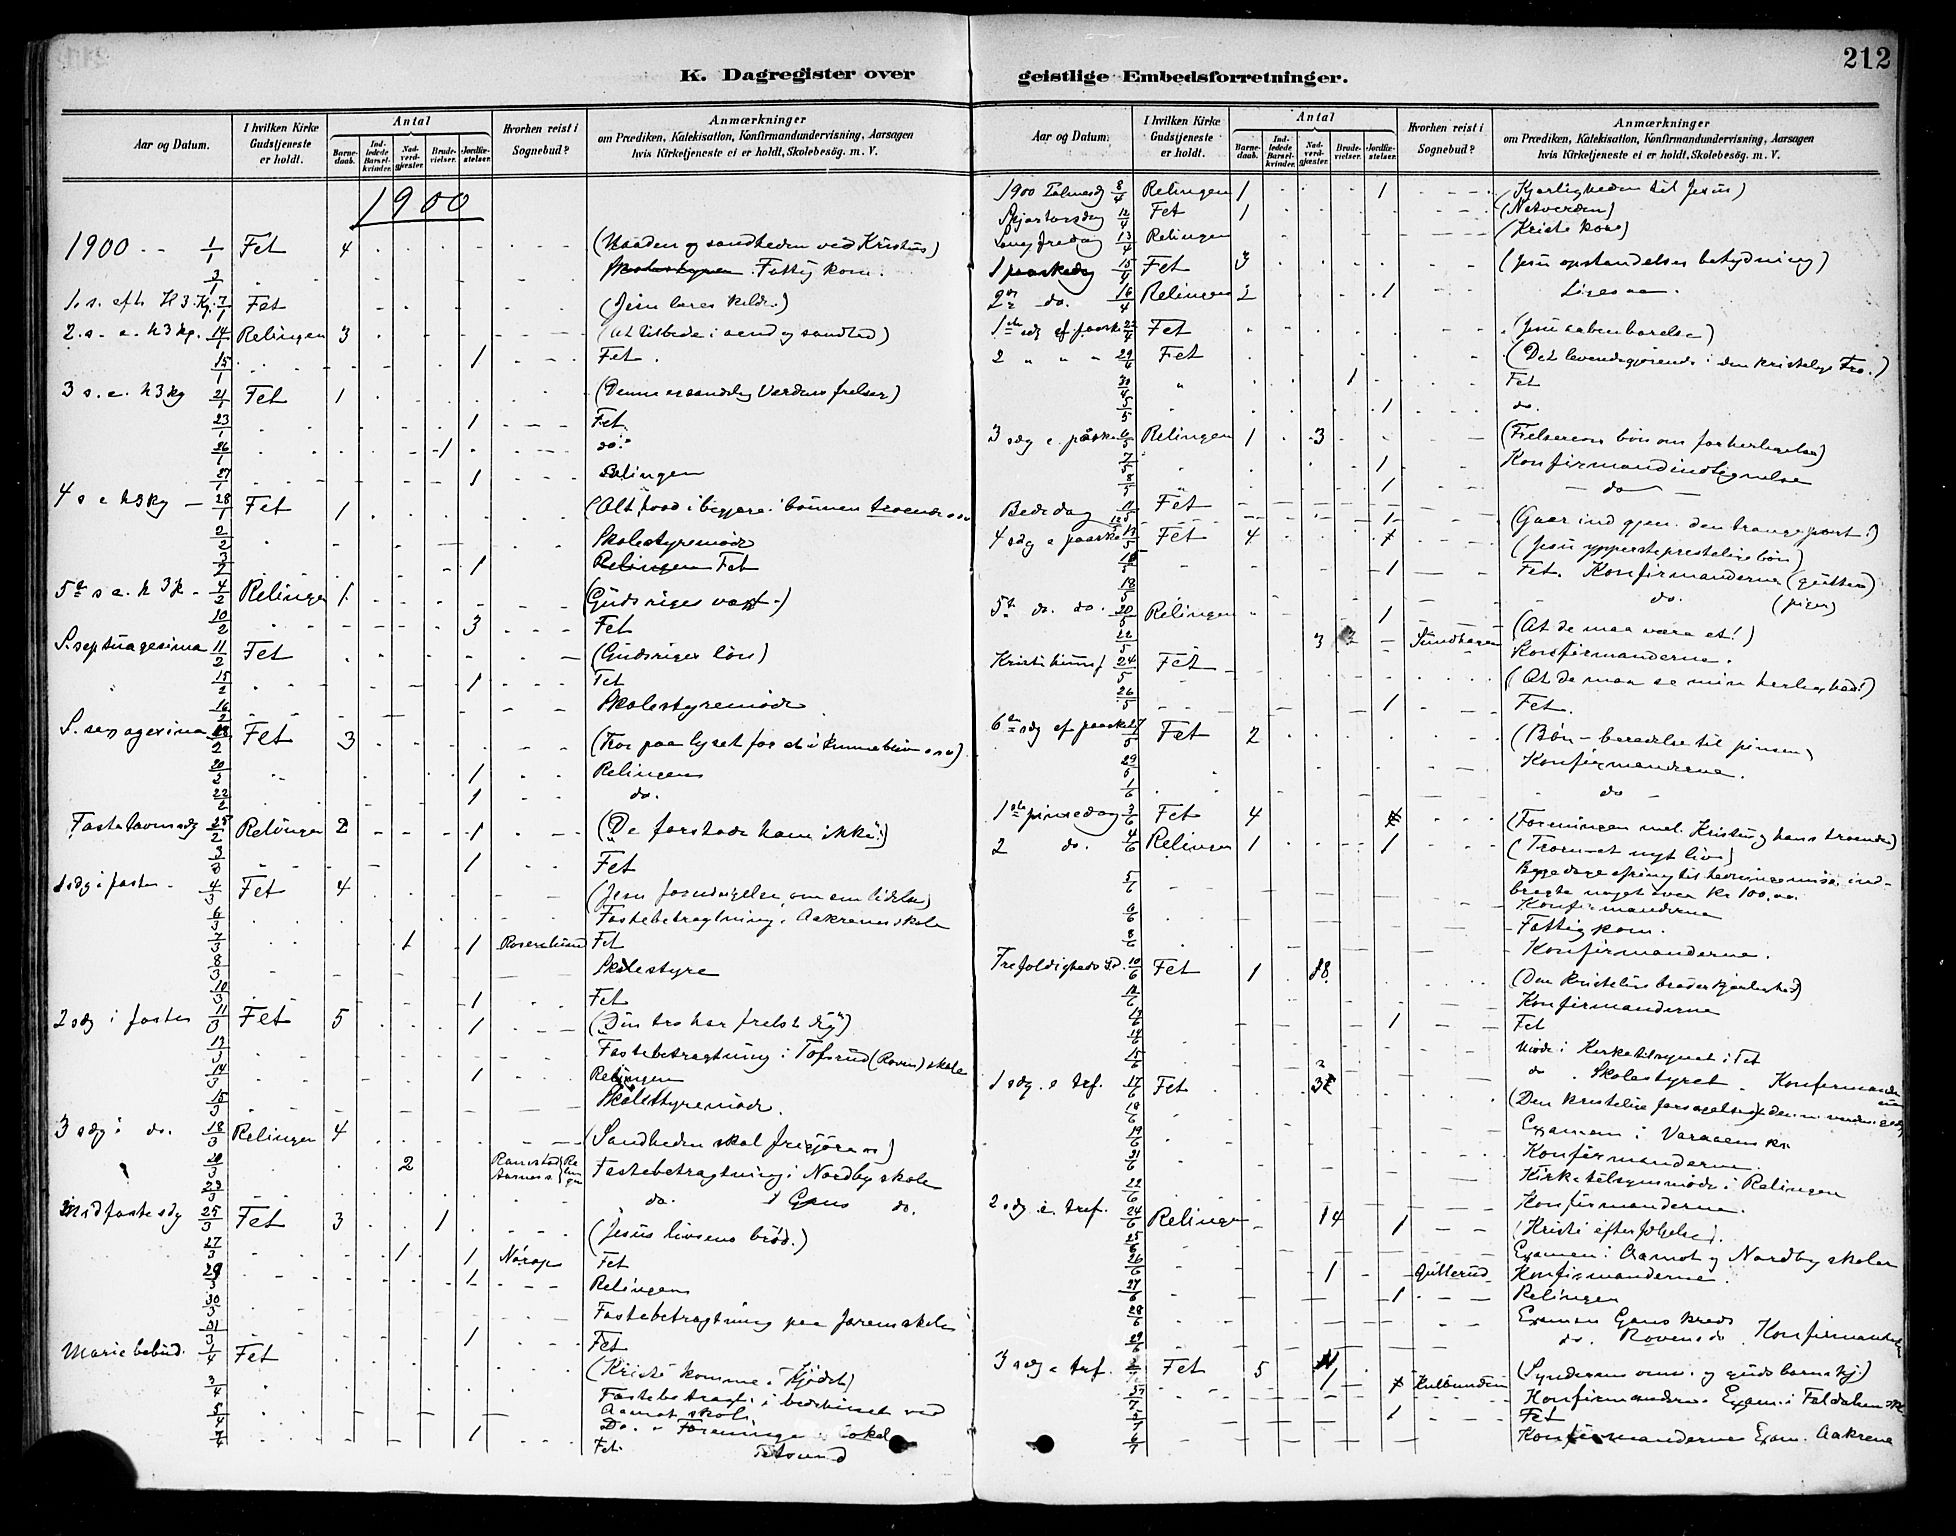 212
K. Dagregister over
Aar og Datum.
I hvilken Kirke Gudstjeneste er holdt.
Antal
Barnedaab.
Indledede Barselkvinder.
Nadverdgjæster.
Brudevielser.
Jordfæstelser.
Hvorhen reist i Sognebud?
Anmærkninger
om Prædiken, Katekisation, Konfirmandundervisning, Aarsagen
hvis Kirketjeneste ei er holdt, Skolebesög. m. V.
1900
1900 1/1 Fet 4 (Naaden og sandheden ved Kristus)
3/1 Fattigkom.
1. s. eft. H3Kg. 7/1 Fet (Jesu læres kilde.)
2. s. e. h3kg. 14/1 Relingen 3 (at tilbede i aand og sandhed)
15/1 1 Fet
3 s. e. h3kg 21/1 Fet 1 (Denne er sandelig Verdens frelser)
23/1 1 Fet
26/1 1 do.
27/1 1 Relingen
4 s e h3kg 28/1 Fet 1 (Alt hvad i begjære i bønnen troende osv
2/2 Skolestyremöde
3/2 1 Fet
5te s e. h 3k. 4/2 Relingen 1 (Guds riges vext.)
10/2 3 Fet
S. septuagesima 11/2 Fet (Gudsriges lön)
15/2 1 Fet
16/2 Skolestyremöde
S. sexagesima 18/2 Fet 3 (Tro paa lyset for at i kunne blive osv)
20/2 1 Relingen
22/2 1 do.
Fastelavnssdg 25/2 Relingen 2 1 ("De forstode ham ikke")
3/3 1 Fet
1 sdg i faste 4/3 Fet 4 (Jesu forudsigelse om sin lidelse)
6/3 Fastebetragtning i Aakrenes skole
7/3 1 1 Rosenlund Fet
8/3 Skolestyre
10/3 1 Fet
2 sdg i fasten 11/3 Fet 5 1 ("Din tro har frelst dig")
13/3 Fastebetragtning i Tofsrud (Roven) skole
14/3 1 Relingen
15/3 Skolestyremöde.
3 sdg i do. 18/3 Relingen 4 (Sandheden skal frigjöre os)
20/3 2 Ramstad Aarnes Fastebetragtning i Nordby skole
23/3 do. i Gans do.
Midfastesdg 25/3 Fet 3 1 (Jesus livsens bröd.)
27/3 1 1 Fet
29/3 1 Relingen
30/3 Fastebetragtning paa Jaren skole
31/3 1 Fet
Mariæ bebud. 1/4 Fet (Kristi komme i Kjødet)
3/4 Fastebetragt. i bedehuset ved Aamot skole
5/4 Do. Forenings lokal Fetsund
7/4 1 Fet
geistlige Embedsforretninger.
Aar og Datum.
I hvilken Kirke Gudstjeneste er holdt.
Antal
Barnedaab.
Indledede Barselkvinder.
Nadverdgjæster.
Brudevielser.
Jordfæstelser.
Hvorhen reist i Sognebud?
Anmærkninger
om Prædiken, Katekisation, Konfirmandundervisning, Aarsagen
hvis Kirketjeneste ei er holdt, Skolebesög. m. V.
1900 Palmesdg 8/4 Relingen 1 1 (Kjærligheden til Jesus)
Skjærtorsdag 12/4 Fet 1 (Natverden)
Langfredag 13/4 Relingen (Kristi kors)
1 paaskedg 15/4 Fet 3 (Jesu opstandelses betydning)
2den do. 16/4 Relingen 2 1 Ligesaa.
1ste sdg ef. paaske 22/4 Fet (Jesu aabenbarelse)
2 " " " 29/4 Fet (Det levendegjørende i den kristelige Tro.)
30/4 " 1 Fet
5/5 " 1 do.
3 sdg e. påske 6/5 Relingen 1 3 (Frelserens bön om forherligelse)
7/5 " 1 Konfirmandindtegnelse
8/5 1 do
Bededag 11/5 Fet (Gaar ind gjen. den trange port!)
12/5 1
4 sdg e paaske 13/5 Fet 4 (Jesu ypperstepræstelige bön)
1 Fet. Konfirmanderne (gutter)
18/5 do. (piger)
5te do. do. 20/5 Relingen 1 (At de maa være et!)
22/5 3 Sundhagen Konfirmanderne.
Kristi himmf. 24/5 Fet (At de maa se min herlighed!)
26/5 1 Fet.
6te sdg ef paaske 27/5 Fet 2 (Bön - beredelse til pinsen)
29/5 Konfirmanderne.
1/6 do
1ste pinsedag 3/6 Fet 4 (Foreningen mel. Kristus og hans troende)
2 do. 4/6 Relingen 1 1 (Troen et nyt liv)
5/6 til hedningemis. indbragte noget over Kr 100,00.
6/6 Konfirmanderne Fattigkom.
8/6 Konfirmanderne.
Trefoldigheds Sd. 10/6 Fet 1 18. (Den kristelige broderkjærlighed)
12/6 Konfirmanderne
13/6 1 Fet
14/6 Möde i Kirketilsynet i Fet
15/6 do. Skolestyret. Konfirmanderne
1 sdg. e tref. 17/6 Fet (Den kristelige forsagelse
18/6 Examen i
19/6 Konfirmanderne.
21/6 Kirketilsynsmöde i Relingen
22/6 Konfirmanderne.
2 sdg. e. tref. 24/6 Relingen 14 1 (Kristi efterfölgelse).
25/6 Examen i Aamot og Nordby skoler
26/6 1 Gutterud Konfirmanderne.
27/6 1 Relingen
28/6 Examen Gans kreds
29/6 do. Rovens do. Konfirmanderne
3 sdg e tref. Fet 5 (Synderens omv. og guds barmhj.)
1 Konfirmanderne. Exam. i Faldalen sk
5/7 1 Fet
6/7 Konfirmanderne Exam. Aakrene